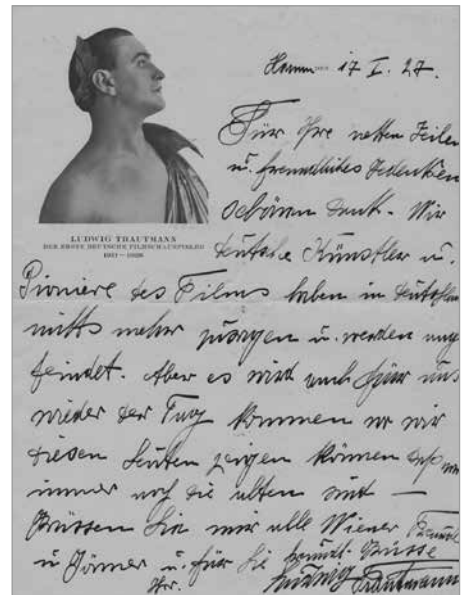 Hamm den 17 I. 27.
LUDWIG TRAUTMANN
DER ERSTE DEUTSCHE FILMSCHAUSPIELER
Für Ihre netten Zeilen
u. freundliches Gedenken
schönen Dank. Wir
deutsche Künstler u.
Pioniere des Films haben in
nichts mehr u. werden ange
feindet. Aber es wird auch für uns
wieder der Tag kommen wo wir
diesen Leuten zeigen können daß wir
immer noch die alten sind —
Grüssen Sie mir alle Wiener Freunde
u Gönner u. für Sie Grüsse
Ihr. Ludwig Trautmann